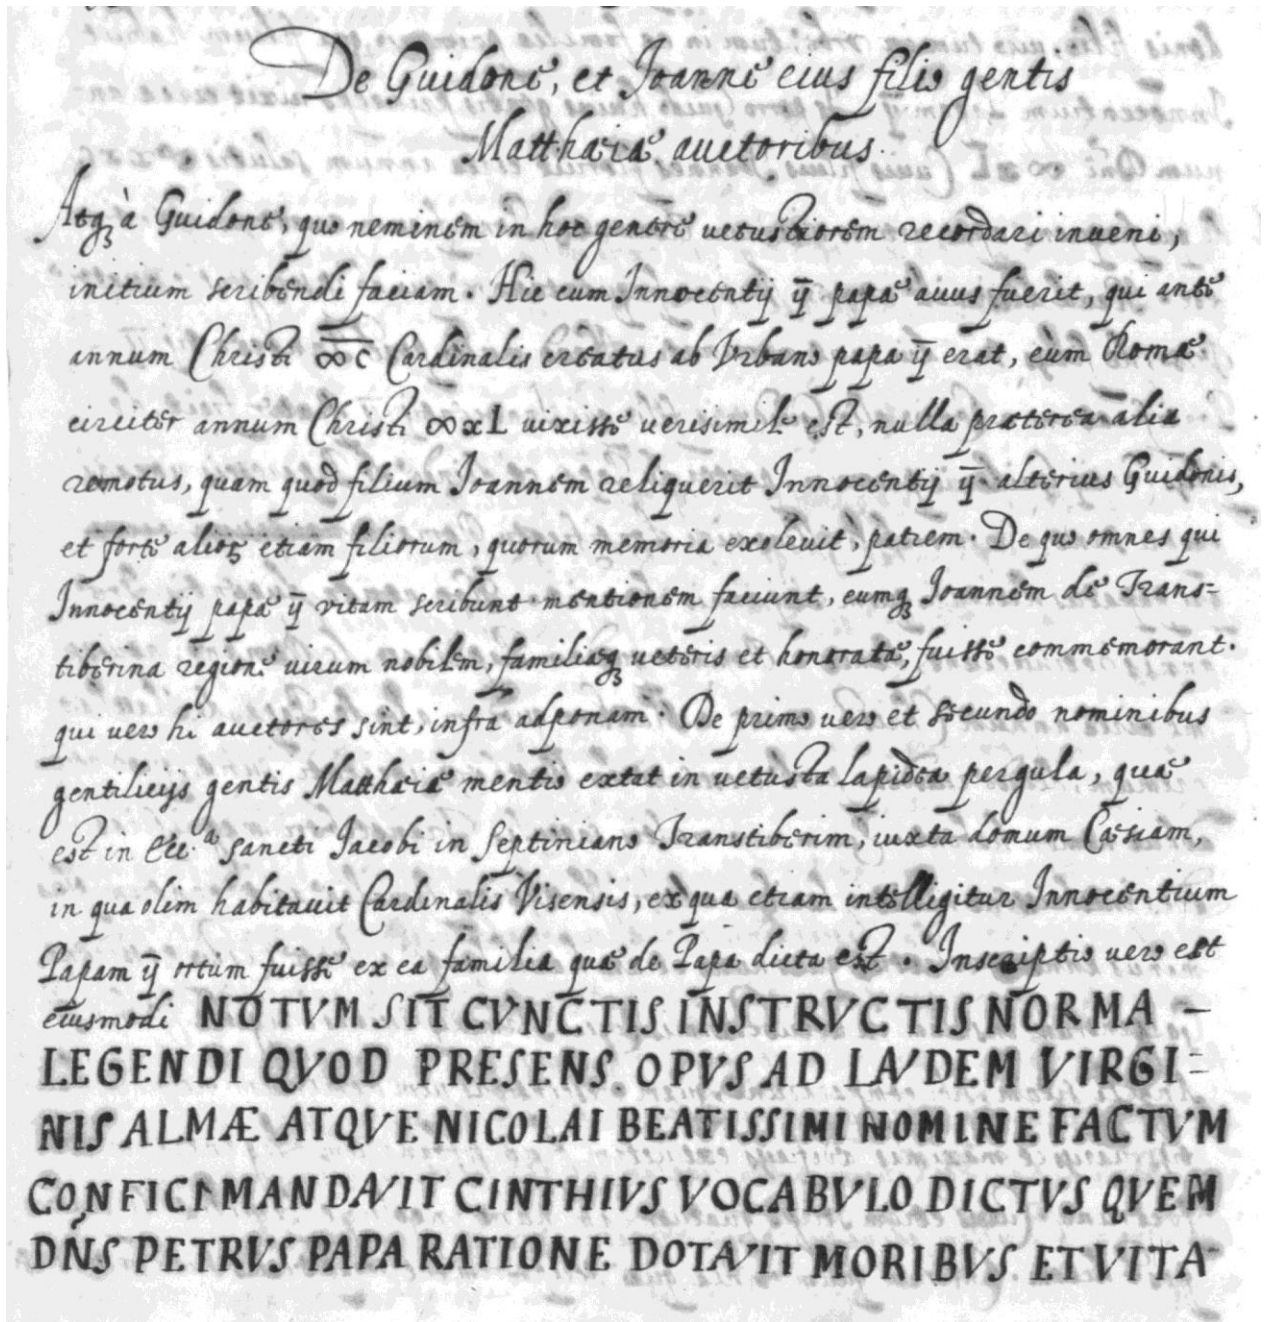 De Guidone, et Joanne eius filio gentis
Matthæiæ auctoribus.
Atq3 à Guidone, quo neminem in hoc genere uetustiorem recordari inueni,
initium scribendi faciam. Hic cum Innocentij ij papæ auus fuerit, qui ante
annum Christi ∞c Cardinalis creatus ab Vrbano papa ij erat, eum Romæ
circiter annum Christi ∞xL uixisse uerisimile est, nulla præterea alia
re motus, quam quod filium Joannem reliquerit Innocentij ij alterius Guidonis,
et forte alioꝝ etiam filiorum, quorum memoria exoleuit, patrem. De quo omnes qui
Innocentij papæ ij vitam scribunt mentionem faciunt, eumq3 Joannem de Trans-
tiberina regione uirum nobilem, familiæq3 ueteris et honoratæ, fuisse commemorant.
qui uero hi auctores sint, infra adponam. De primo uero et secundo nominibus
gentilicijs gentis Matthæiæ mentio extat in uetusta lapidea pergula, quæ
est in Ecc.ª sancti Jacobi in Septiniano Transtiberim, iuxta domum Cæsiam,
in qua olim habitauit Cardinalis Visensis, ex qua etiam intelligitur Innocentium
Papam ij ortum fuisse ex ea familia quæ de Papa dicta est. Inscriptio uero est
eiusmodi NOTVM SIT CVNCTIS INSTRVCTIS NORMA -
LEGENDI QVOD PRESENS OPVS AD LAVDEM VIRGI=
NIS ALMÆ ATQVE NICOLAI BEATISSIMI NOMINE FACTVM
CONFICI MANDAVIT CINTHIVS VOCABVLO DICTVS QVEM
DÑS PETRVS PAPA RATIONE DOTAVIT MORIBVS ET VITA